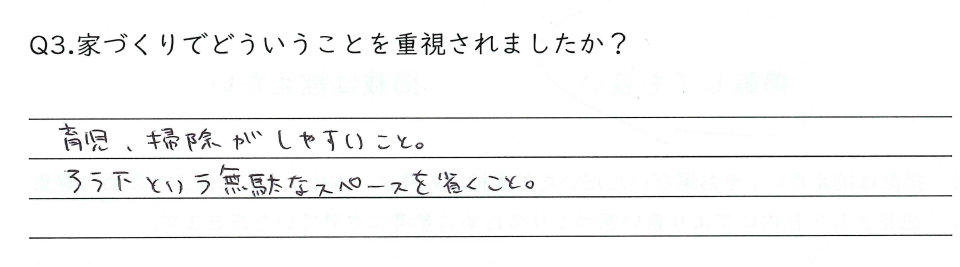 Q3.家づくりでどういうことを重視されましたか？
育児、掃除がしやすいこと。
ろう下という無駄なスペースを省くこと。